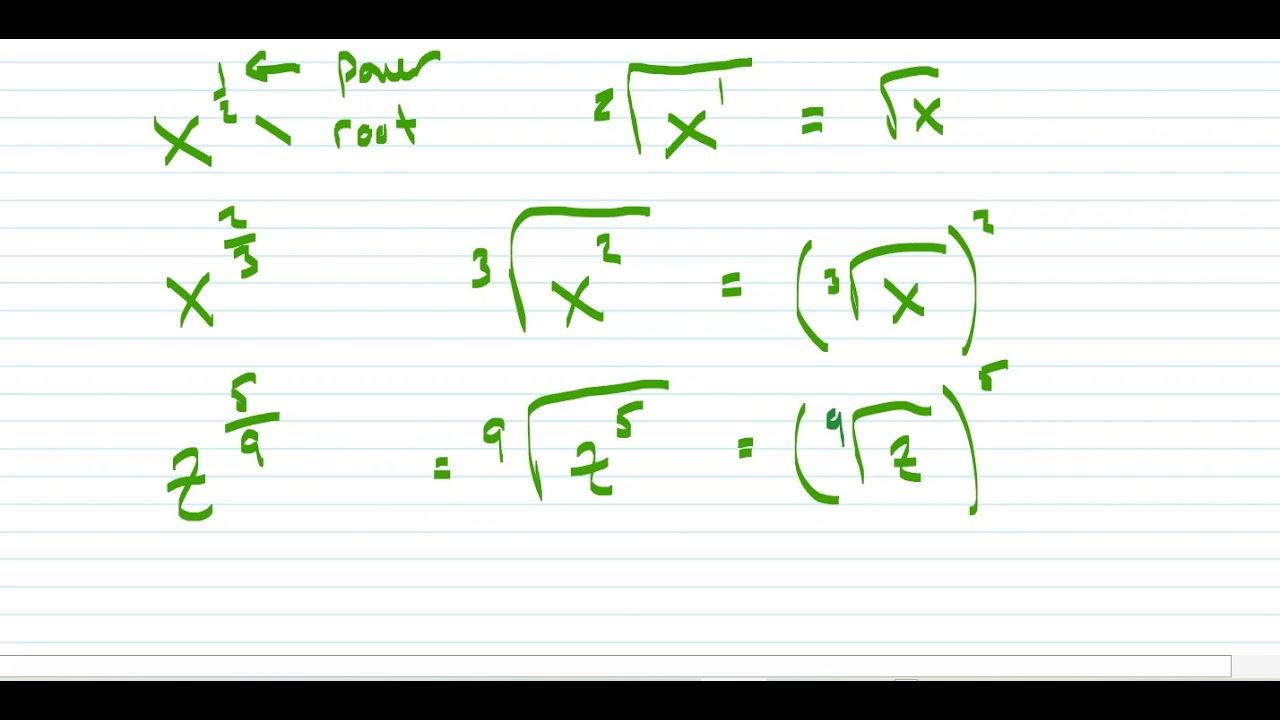 x^{1/2} ← power \ root   ²√x¹ = √x
x^{2/3}   ³√x² = (³√x)²
z^{5/9} = ⁹√z⁵ = (⁹√z)⁵